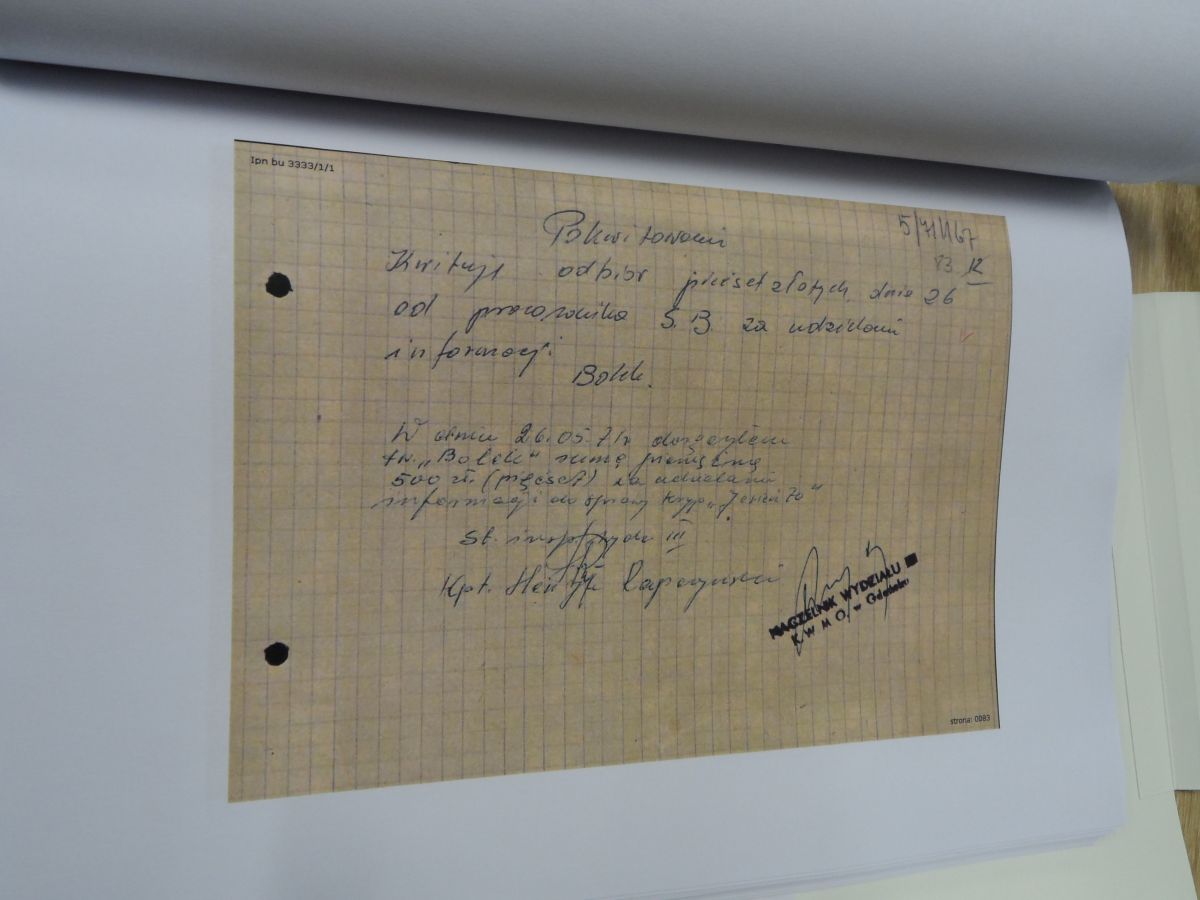 Ipn bu 3333/1/1
5/71/167
13 12
Pokwitowani
Kwituję odbiór pięćset złotych dnia 26
od pracownika S.B. za udzielani
informacji
Bolek.
W dniu 26.05.71r doręczyłem
tw. „Bolek" sumę pieniężną
500 zł. (pięćset) za udzielanie
informacji do sprawy krypt. „Jesień 70"
St. insp. Wydz. III
Kpt. Henryk Rapczyński
NACZELNIK WYDZIAŁU III
K.W M O. w Gdańsku
strona: 0083